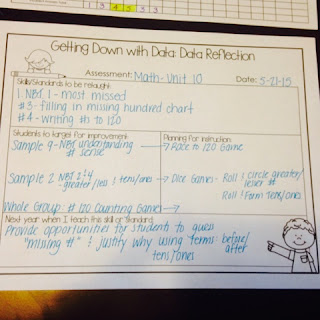 1 3 4 5 3 3
Getting Down with Data: Data Reflection
Assessment: Math-Unit 10 Date: 5-21-15
Skills/Standards to be retaught:
1.NBT 1 - most missed
#3 - filling in missing hundred chart
#4 - writing #s to 120
Students to target for improvement: Planning for instruction:
Sample 9 - NBT understanding → Race to 120 Game
# sense
Sample 2 NBT 2!4 → Dice Games - Roll ! circle greater/
- greater/less ! tens/ones lesser #
Roll ! Form Tens/ones
Whole Group: # 120 Counting Games →
Next year when I teach this skill or standard:
Provide opportunities for students to guess
"missing #" ! justify why using terms: before/
tens/ones after